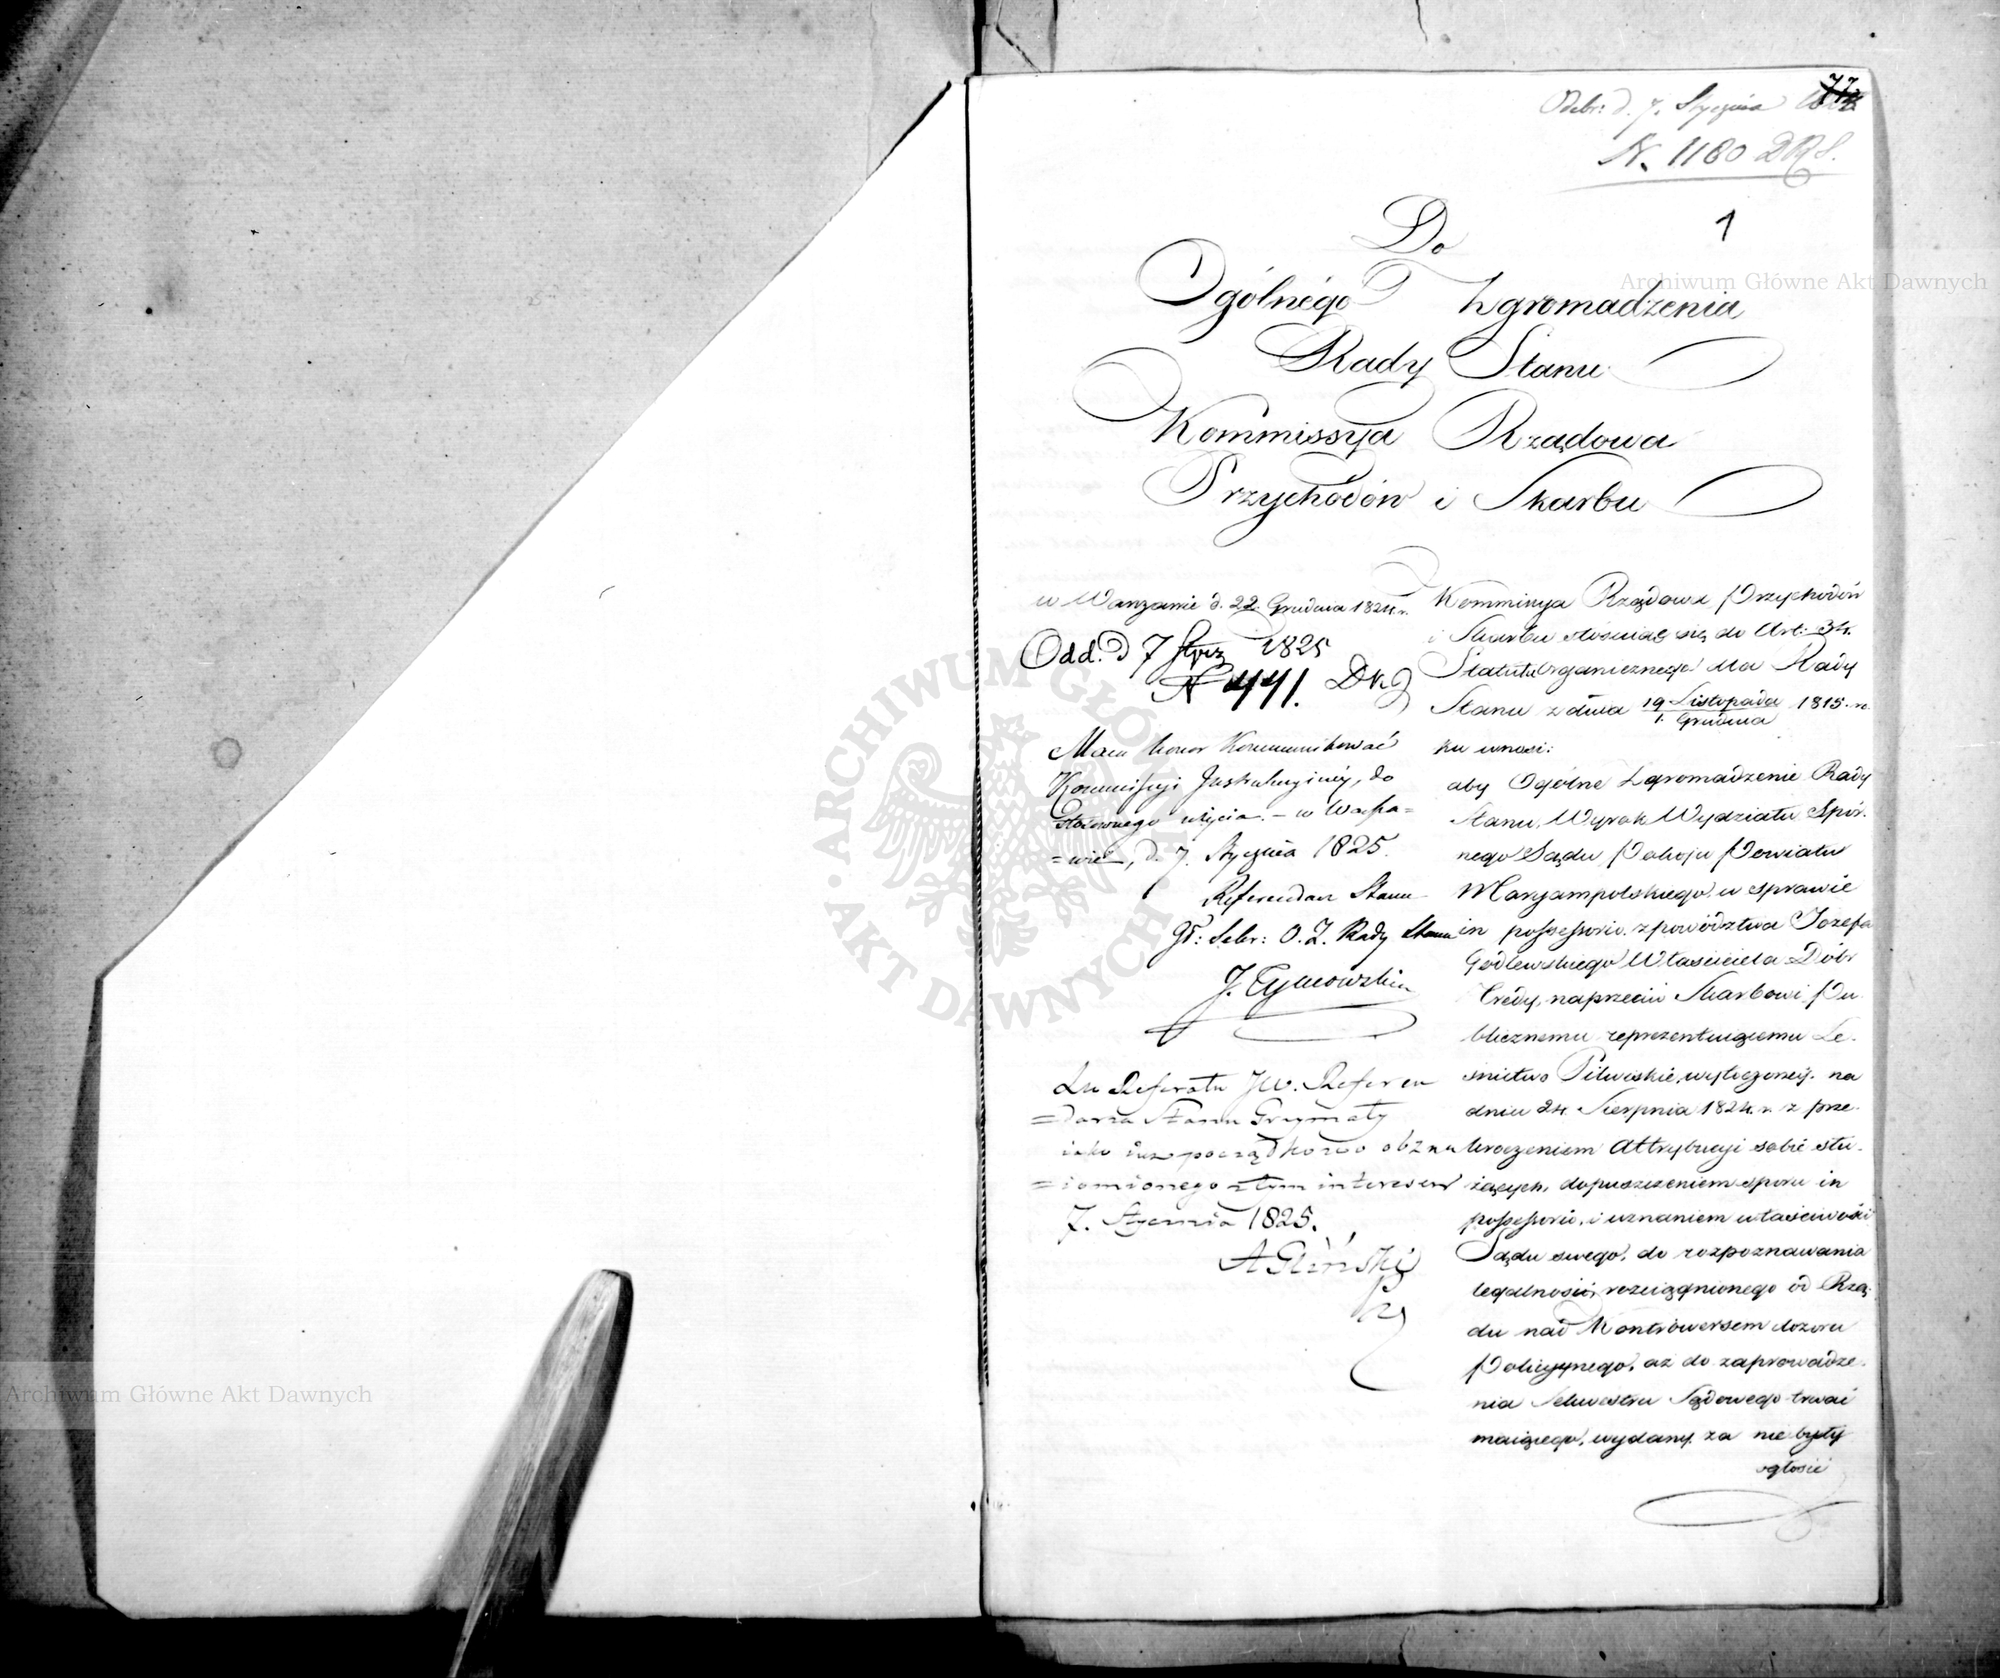 Odebr: d. 7. Stycznia
77
N. 1180 DRS.
1
Do
Ogólnego Zgromadzenia
Rady Stanu
Kommissya Rządowa
Przychodów i Skarbu
w Warszawie d. 22. Grudnia 1824. r.
Odd. d 7 Stycz 1825
N 441.
Mam honor Kommunikować
Kommissyi Instrukcyinéy, do
stosownego użycia. – w Warsza=
=wie, d. 7. Stycznia 1825.
Referendarz Stanu
Sekr: O. Z. Rady Stanu
J. Tymowski
Do Referatu JW. Referen
=darza Stanu Grzymały
iako iuż początkowo obzna
=iomionego z tym interesem
7. Stycznia 1825.
A Gliński
Kommissya Rządowa Przychodów
i Skarbu stosuiąc się do Art: 34.
Statutu Organicznego dla Rady
Stanu z dnia 19 Listopada / 1. Grudnia 1815. ro
ku wnosi:
aby Ogólne Zgromadzenie Rady
Stanu, Wyrok Wydziału Spor.
nego Sądu Pokoju Powiatu
Maryampolskiego w sprawie
in possessorio. z powództwa Jozefa
Godlewskiego Właściciela Dóbr
naprzeciw Skarbowi Pu.
blicznemu reprezentuiącemu Le.
śnictwo Pilwiskie, wytoczonéy. na
dniu 24. Sierpnia 1824. r. z prze.
kroczeniem Attrybucyi sobie słu.
żących, dopuszczeniem sporu in
possessorio, i uznaniem właściwości
Sądu swego, do rozpoznawania
legalności, rozciągnionego od Rzą.
du nad Kontrowersem dozoru
Policyjnego, aż do zaprowadze.
nia Sekwestru Sądowego trwać
maiącego, wydany, za nie były
ogłosić
Archiwum Główne Akt Dawnych
Archiwum Główne Akt Dawnych
ARCHIWUM GŁÓWNE · AKT DAWNYCH ·